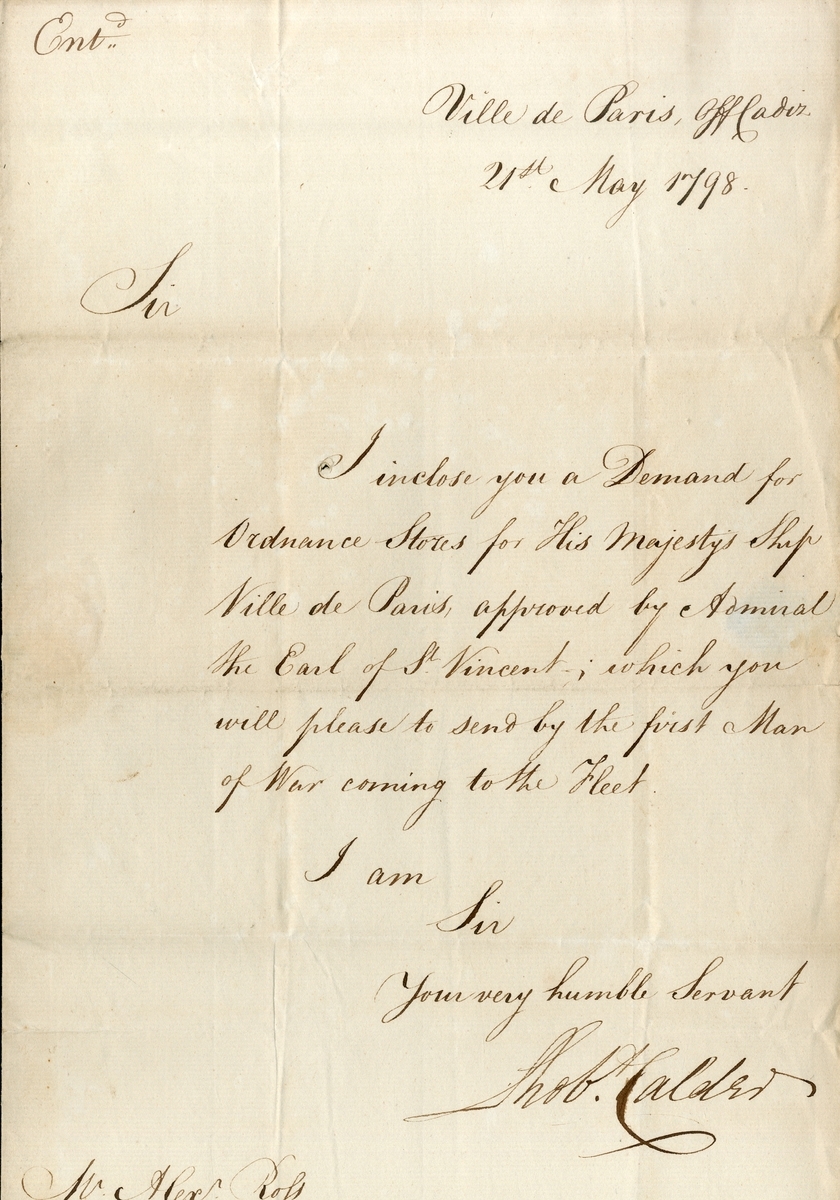 Ent.d
Ville de Paris, Off Cadiz
21st May 1798.
Sir
I inclose you a Demand for
Ordnance Stores for His Majesty's Ship
Ville de Paris, approved by Admiral
the Earl of St Vincent; which you
will please to send by the first Man
of War coming to the Fleet.
I am
Sir
Your very humble Servant
Robt. Calder
Mr. Alexr. Ross